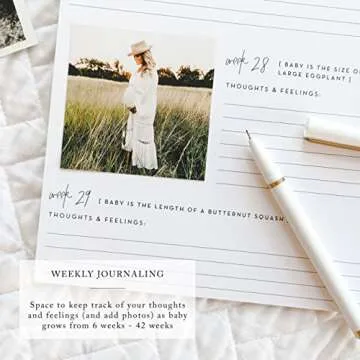 week 28 [ BABY IS THE SIZE OF
LARGE EGGPLANT ]
THOUGHTS & FEELINGS:
week 29 [ BABY IS THE LENGTH OF A BUTTERNUT SQUASH
THOUGHTS & FEELINGS:
WEEKLY JOURNALING
Space to keep track of your thoughts
and feelings (and add photos) as baby
grows from 6 weeks - 42 weeks